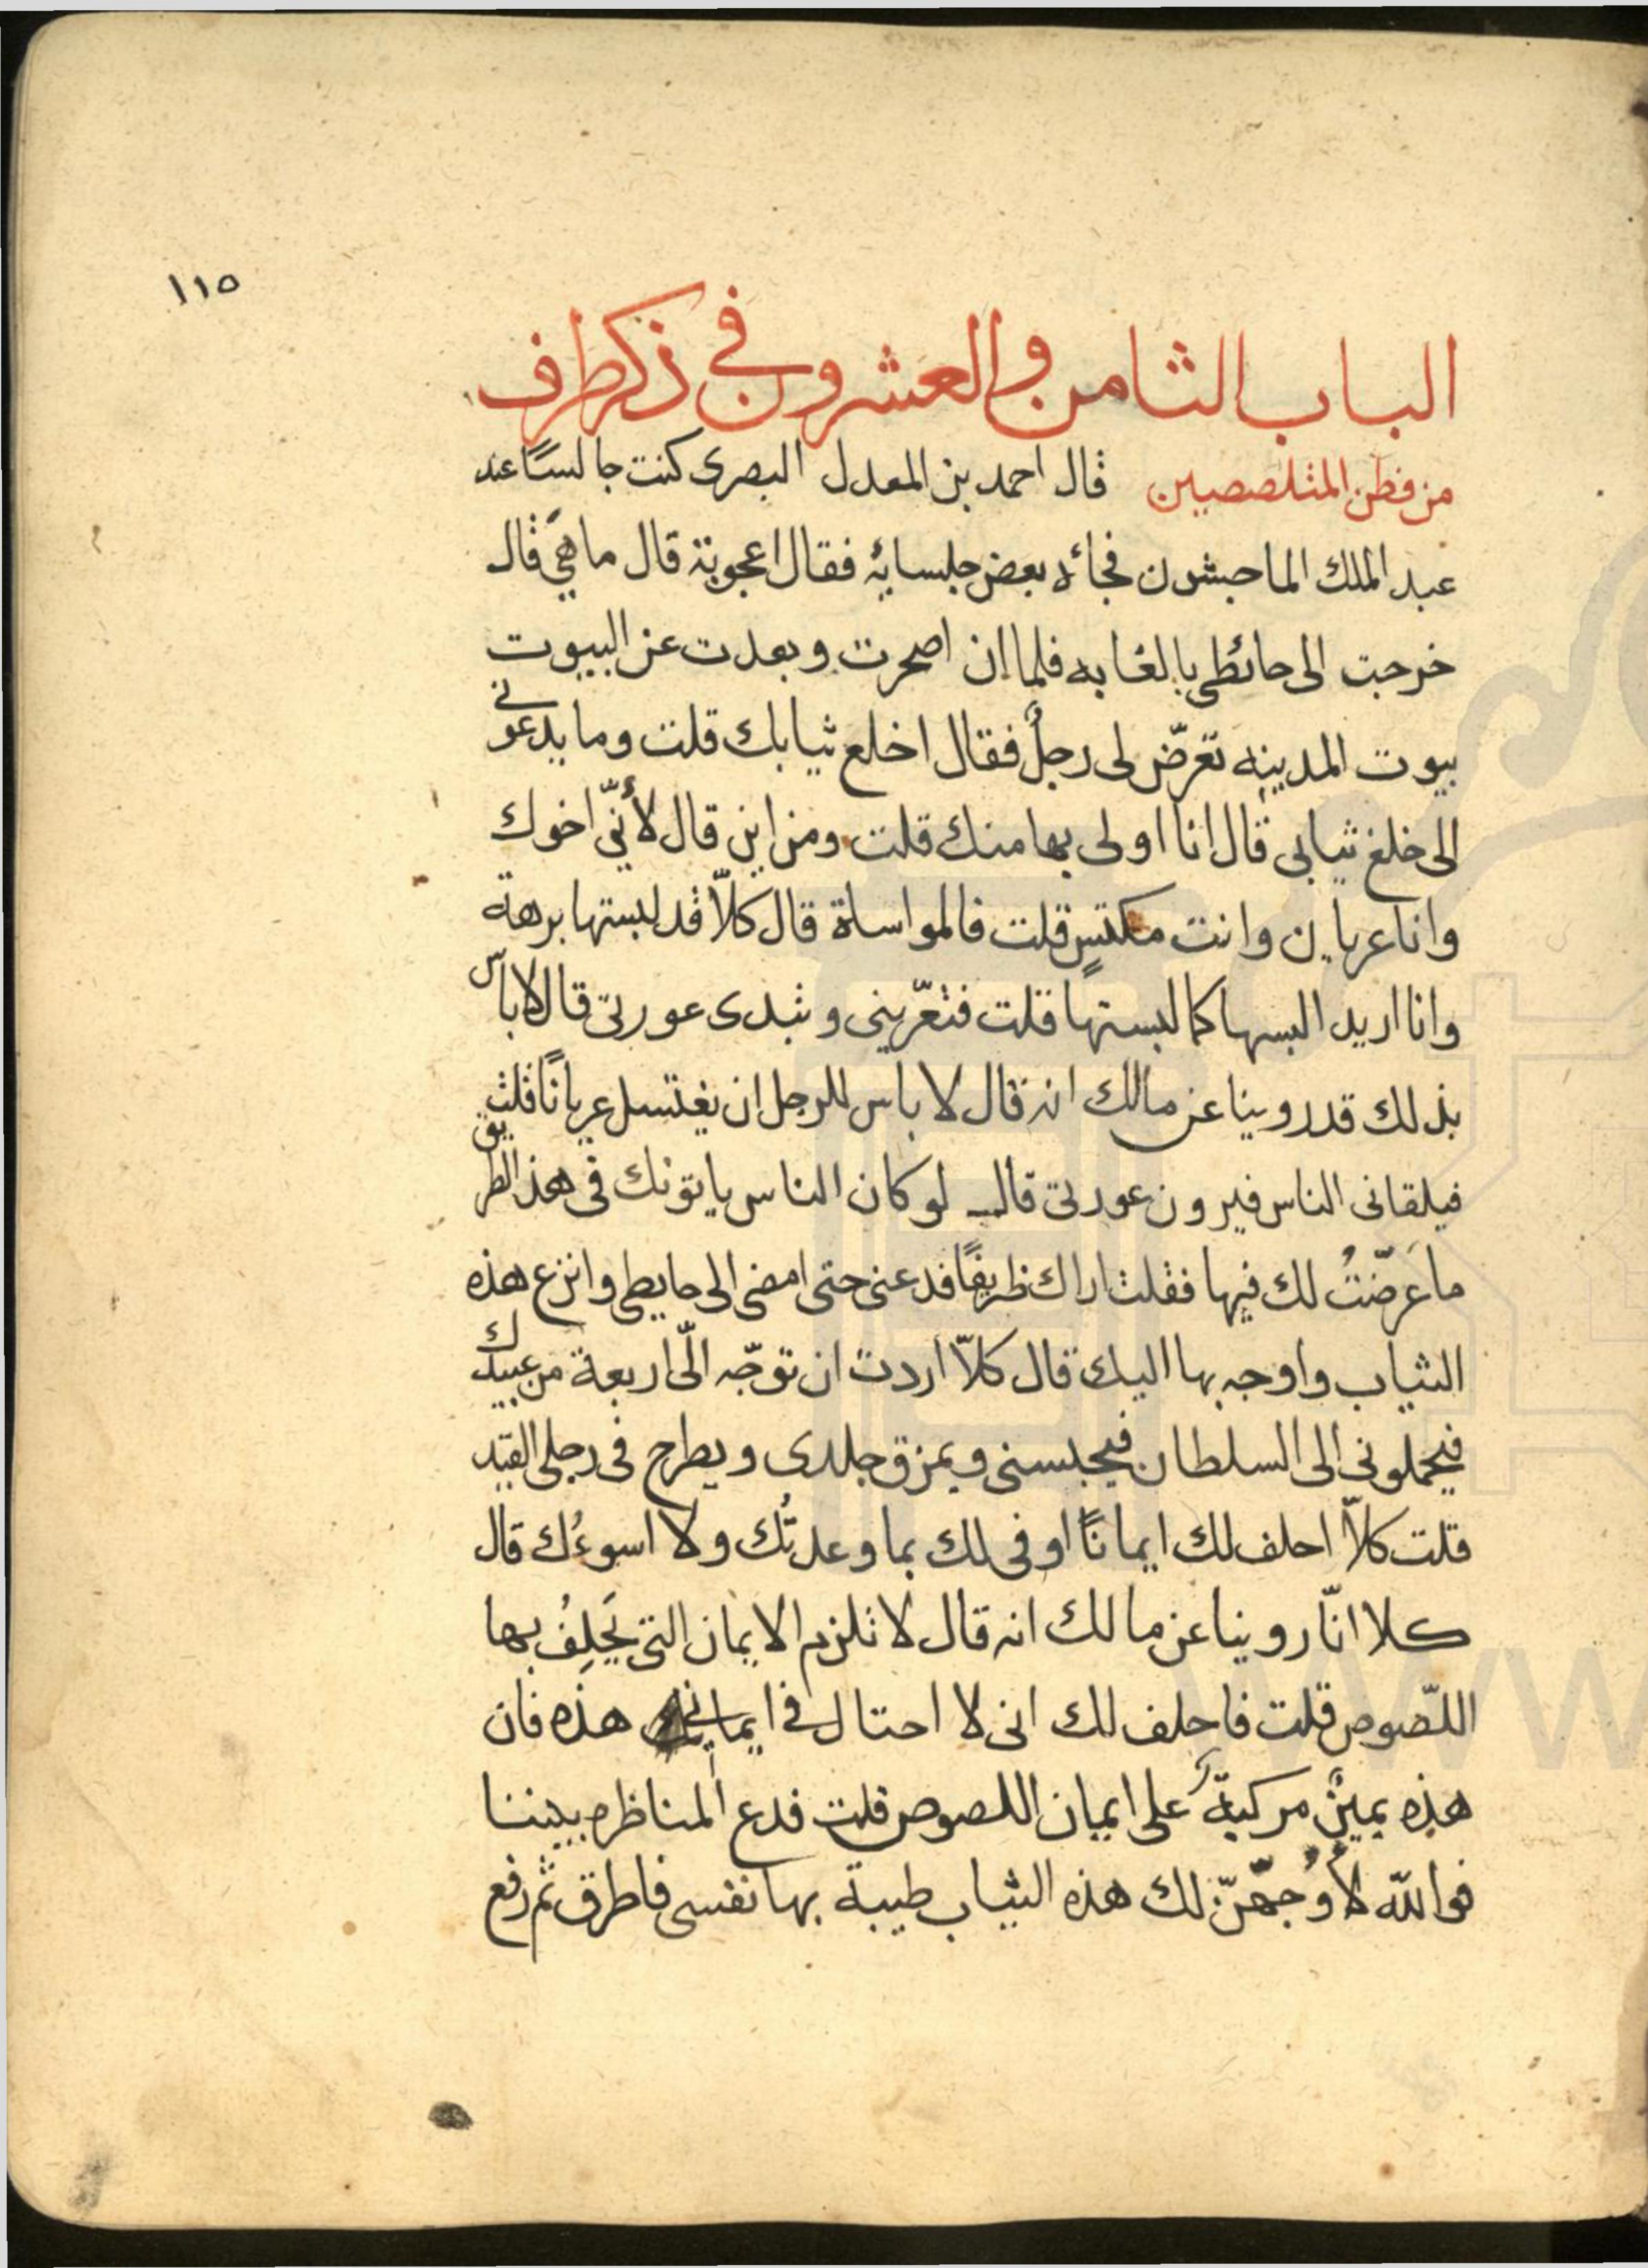 ١١٥
الباب الثامن والعشرون في ذكر طرف
من فطن المتلصصين قال احمد بن المعدل البصرى كنت جالسًا عند
عبد الملك الماجشون فجائه بعض جلسائه فقال اعجوبة قال ما هيَ قال
خرجت الى حائطى بالغابه فلما ان اصحرت وبعدت عن البيوت
بيوت المدينه تعرّض لى رجلٌ فقال اخلع ثيابك قلت وما يدعونى
الى خلع ثيابى قال انا اولى بها منك قلت ومن اين قال لأنّى اخوك
وانا عريان وانت مكتسٍ قلت فالمواساة قال كلاّ قد لبستها برهة
وانا اريد البسها كما لبستها قلت فتعرّينى وتبدى عورتى قال لا باس
بذلك قد روينا عن مالك انه قال لا باس للرجل ان يغتسل عريانًا قلت
فيلقانى الناس فيرون عورتى قال لو كان الناس ياتونك فى هذ الطريق
ما عَرّضتُ لك فيها فقلت اراك ظريفًا فدعنى حتى امضى الى حايطى وانزع هذه
الثياب واوجه بها اليك قال كلاّ اردت ان توجّه الّى اربعة من عبيدك
فيحملونى الى السلطان فيحبسنى ويمزق جلدى ويطرح فى رجلى القيد
قلت كلاّ احلف لك ايمانًا اوفى لك بما وعدتُك ولا اسوءُك قال
كلا انّا روينا عن مالك انه قال لا تلزم الايمان التى يَحلِفُ بها
اللّصوص قلت فاحلف لك انى لا احتال فى ايمانى هذه فان
هذه يمينٌ مركبةٌ على ايمان اللصوص قلت فدع المناظره بيننا
فوالله لأُوجّهنّ لك هذه الثياب طيبة بها نفسى فاطرق ثم رفع